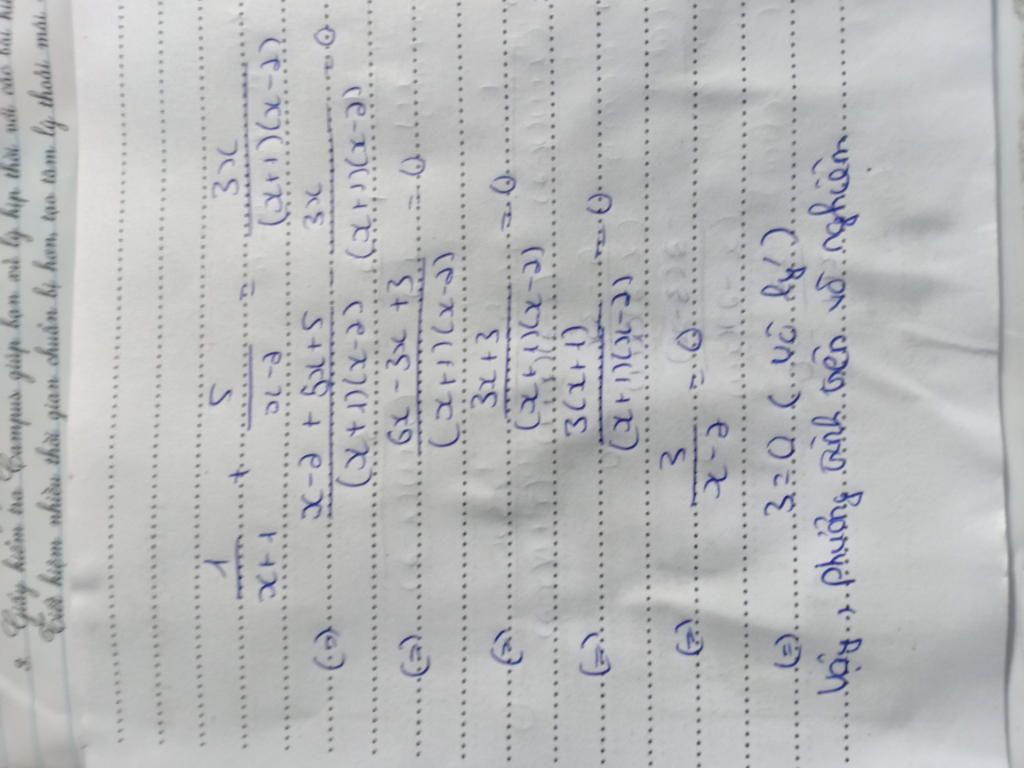 3. Giấy kiểm tra Campus giúp bạn xử lý kịp thời với các bài
Tiết kiệm nhiều thời gian chuẩn bị hơn, tạo tâm lý thoải mái
1/(x+1) + 5/(x-2) = 3x/((x+1)(x-2))
(=) (x-2+5x+5)/((x+1)(x-2)) - 3x/((x+1)(x-2)) = 0
(=) (6x-3x+3)/((x+1)(x-2)) = 0
(=) (3x+3)/((x+1)(x-2)) = 0
(=) 3(x+1)/((x+1)(x-2)) = 0
(=) 3/(x-2) = 0
(=) 3=0 (vô lý)
Vậy, phương trình trên vô nghiệm